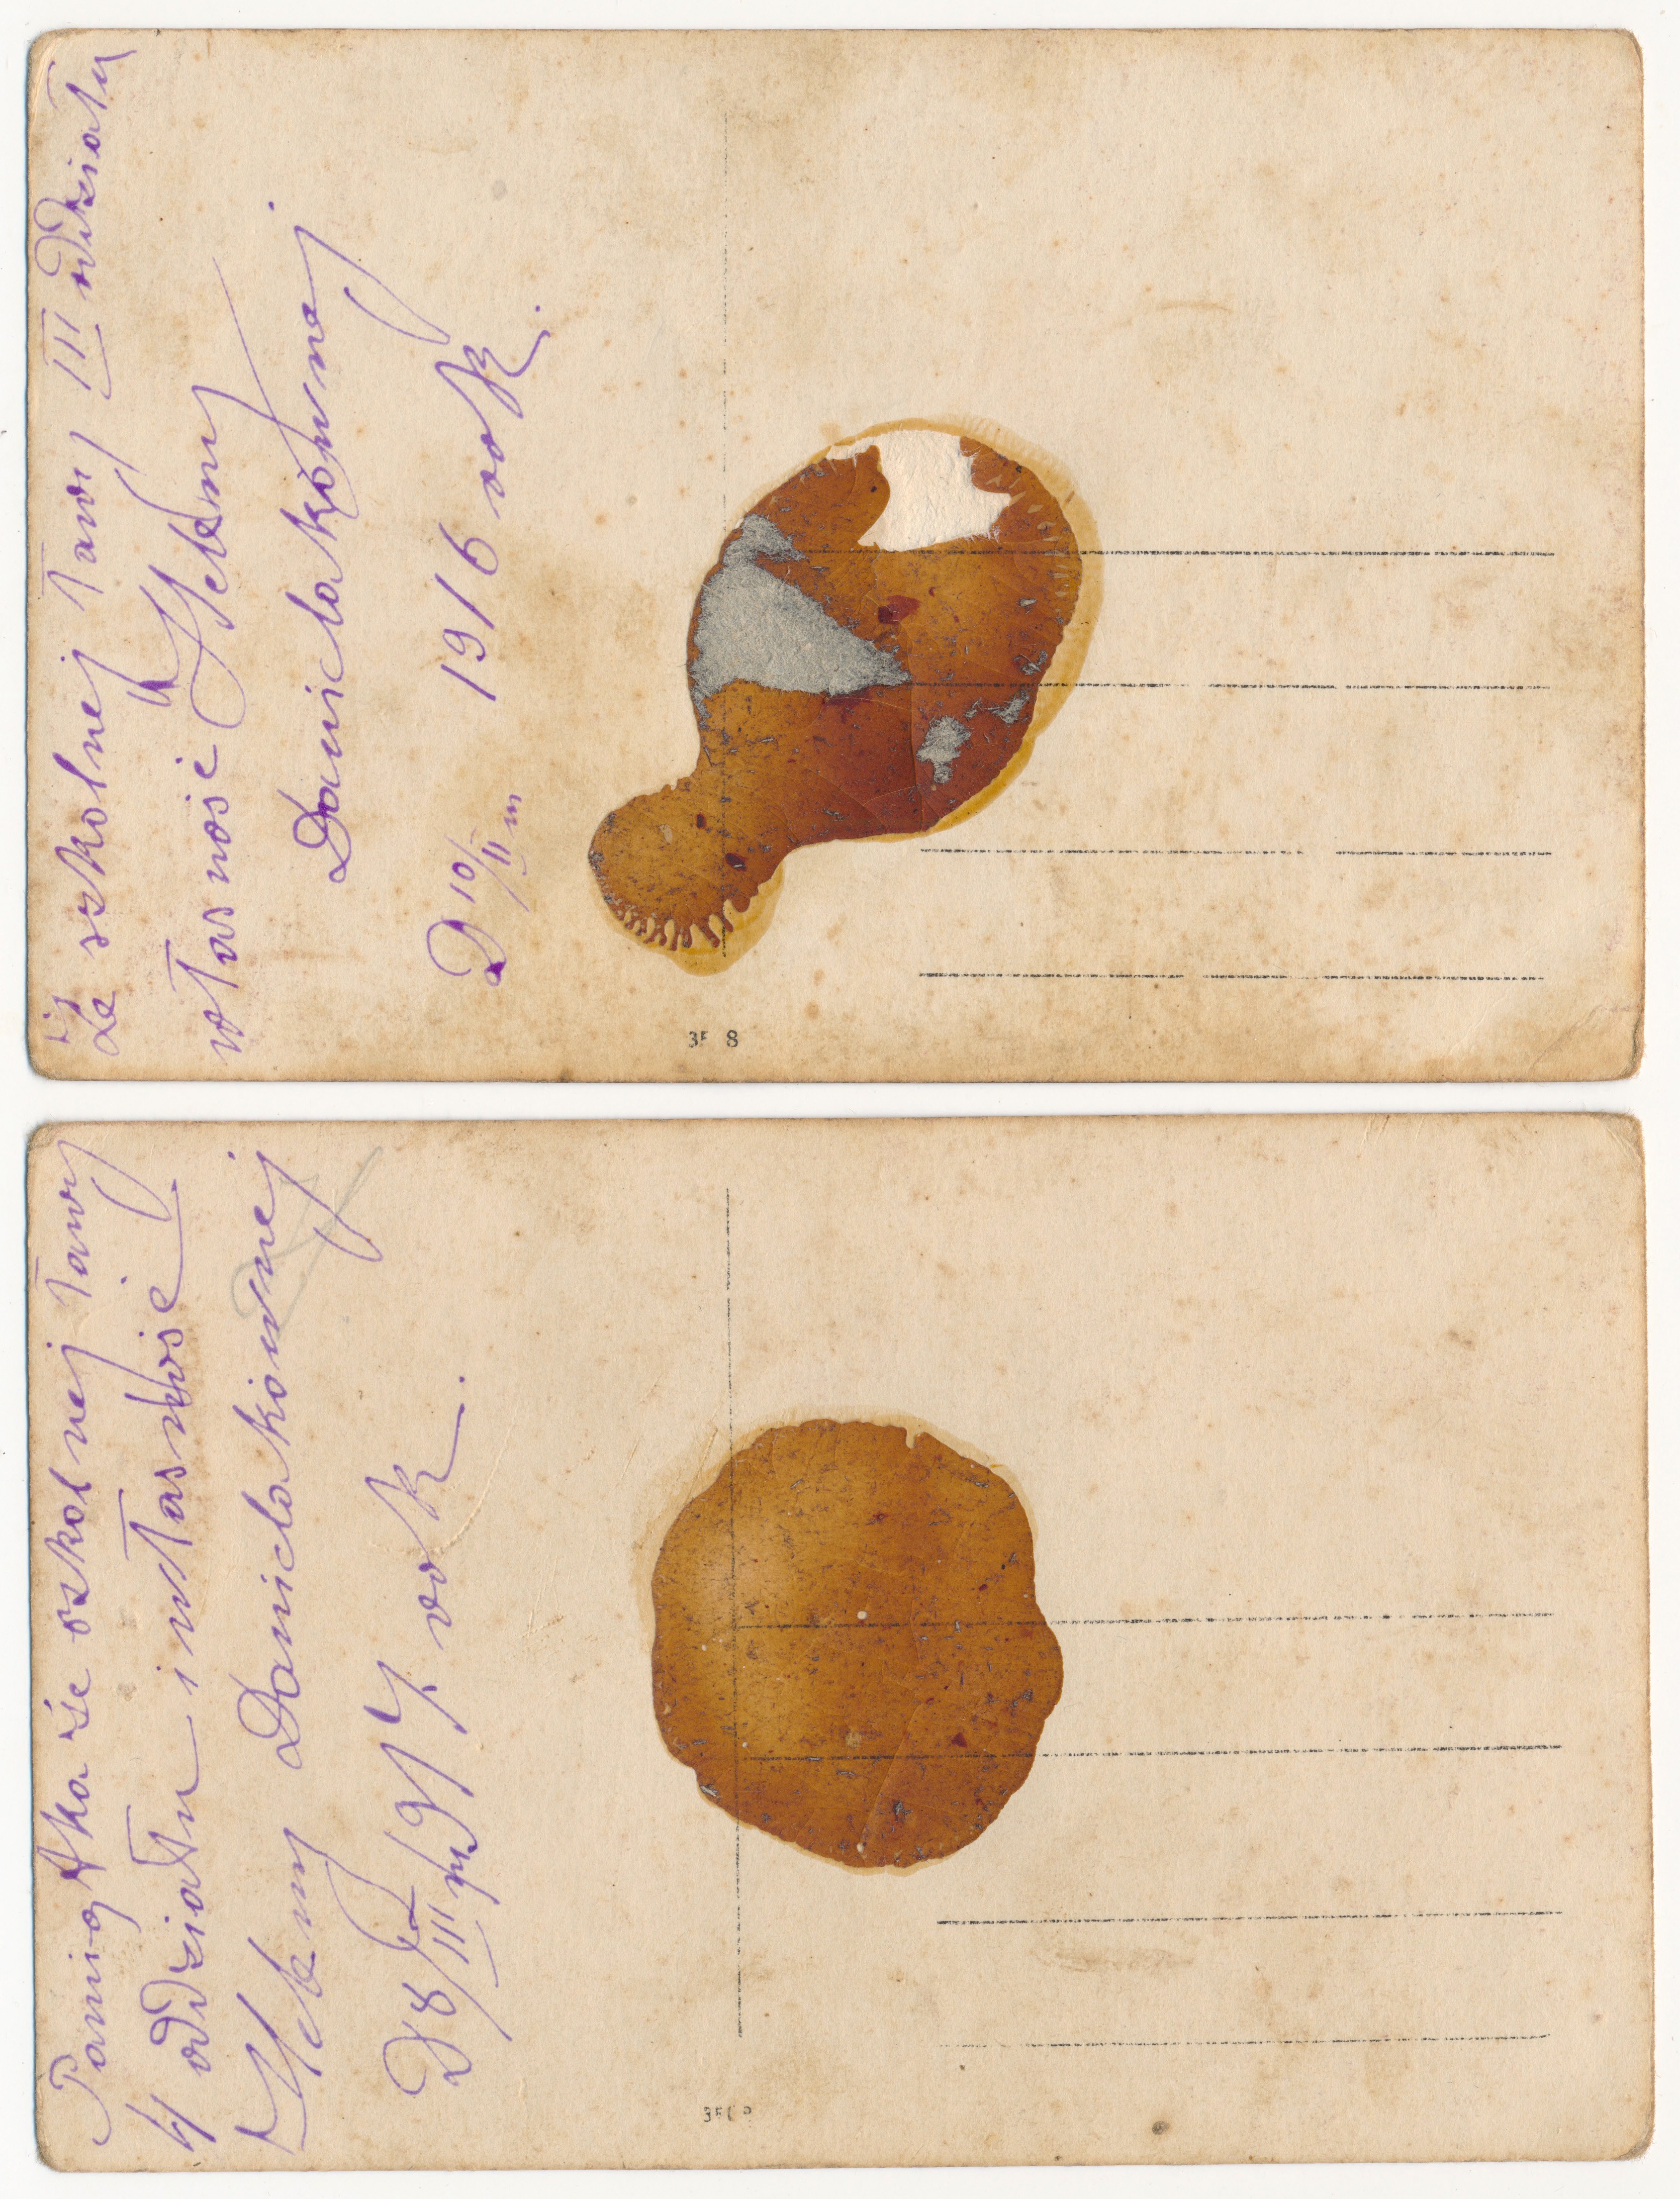 Że szkolnej ławy III oddziału
własność Heleny
Danielakównej.
D 10/II m 1916 rok.
Pamiątka że szkolnej ławy
4 oddziału i własność
Heleny Danielakównej
D 8/III 917 rok.